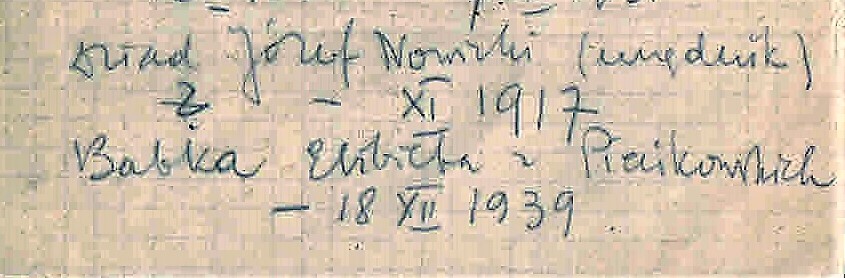 dziad Józef Nowicki (urzędnik)
? - XI 1917
Babka Elżbieta z Piaskowskich
- 18 XII 1939